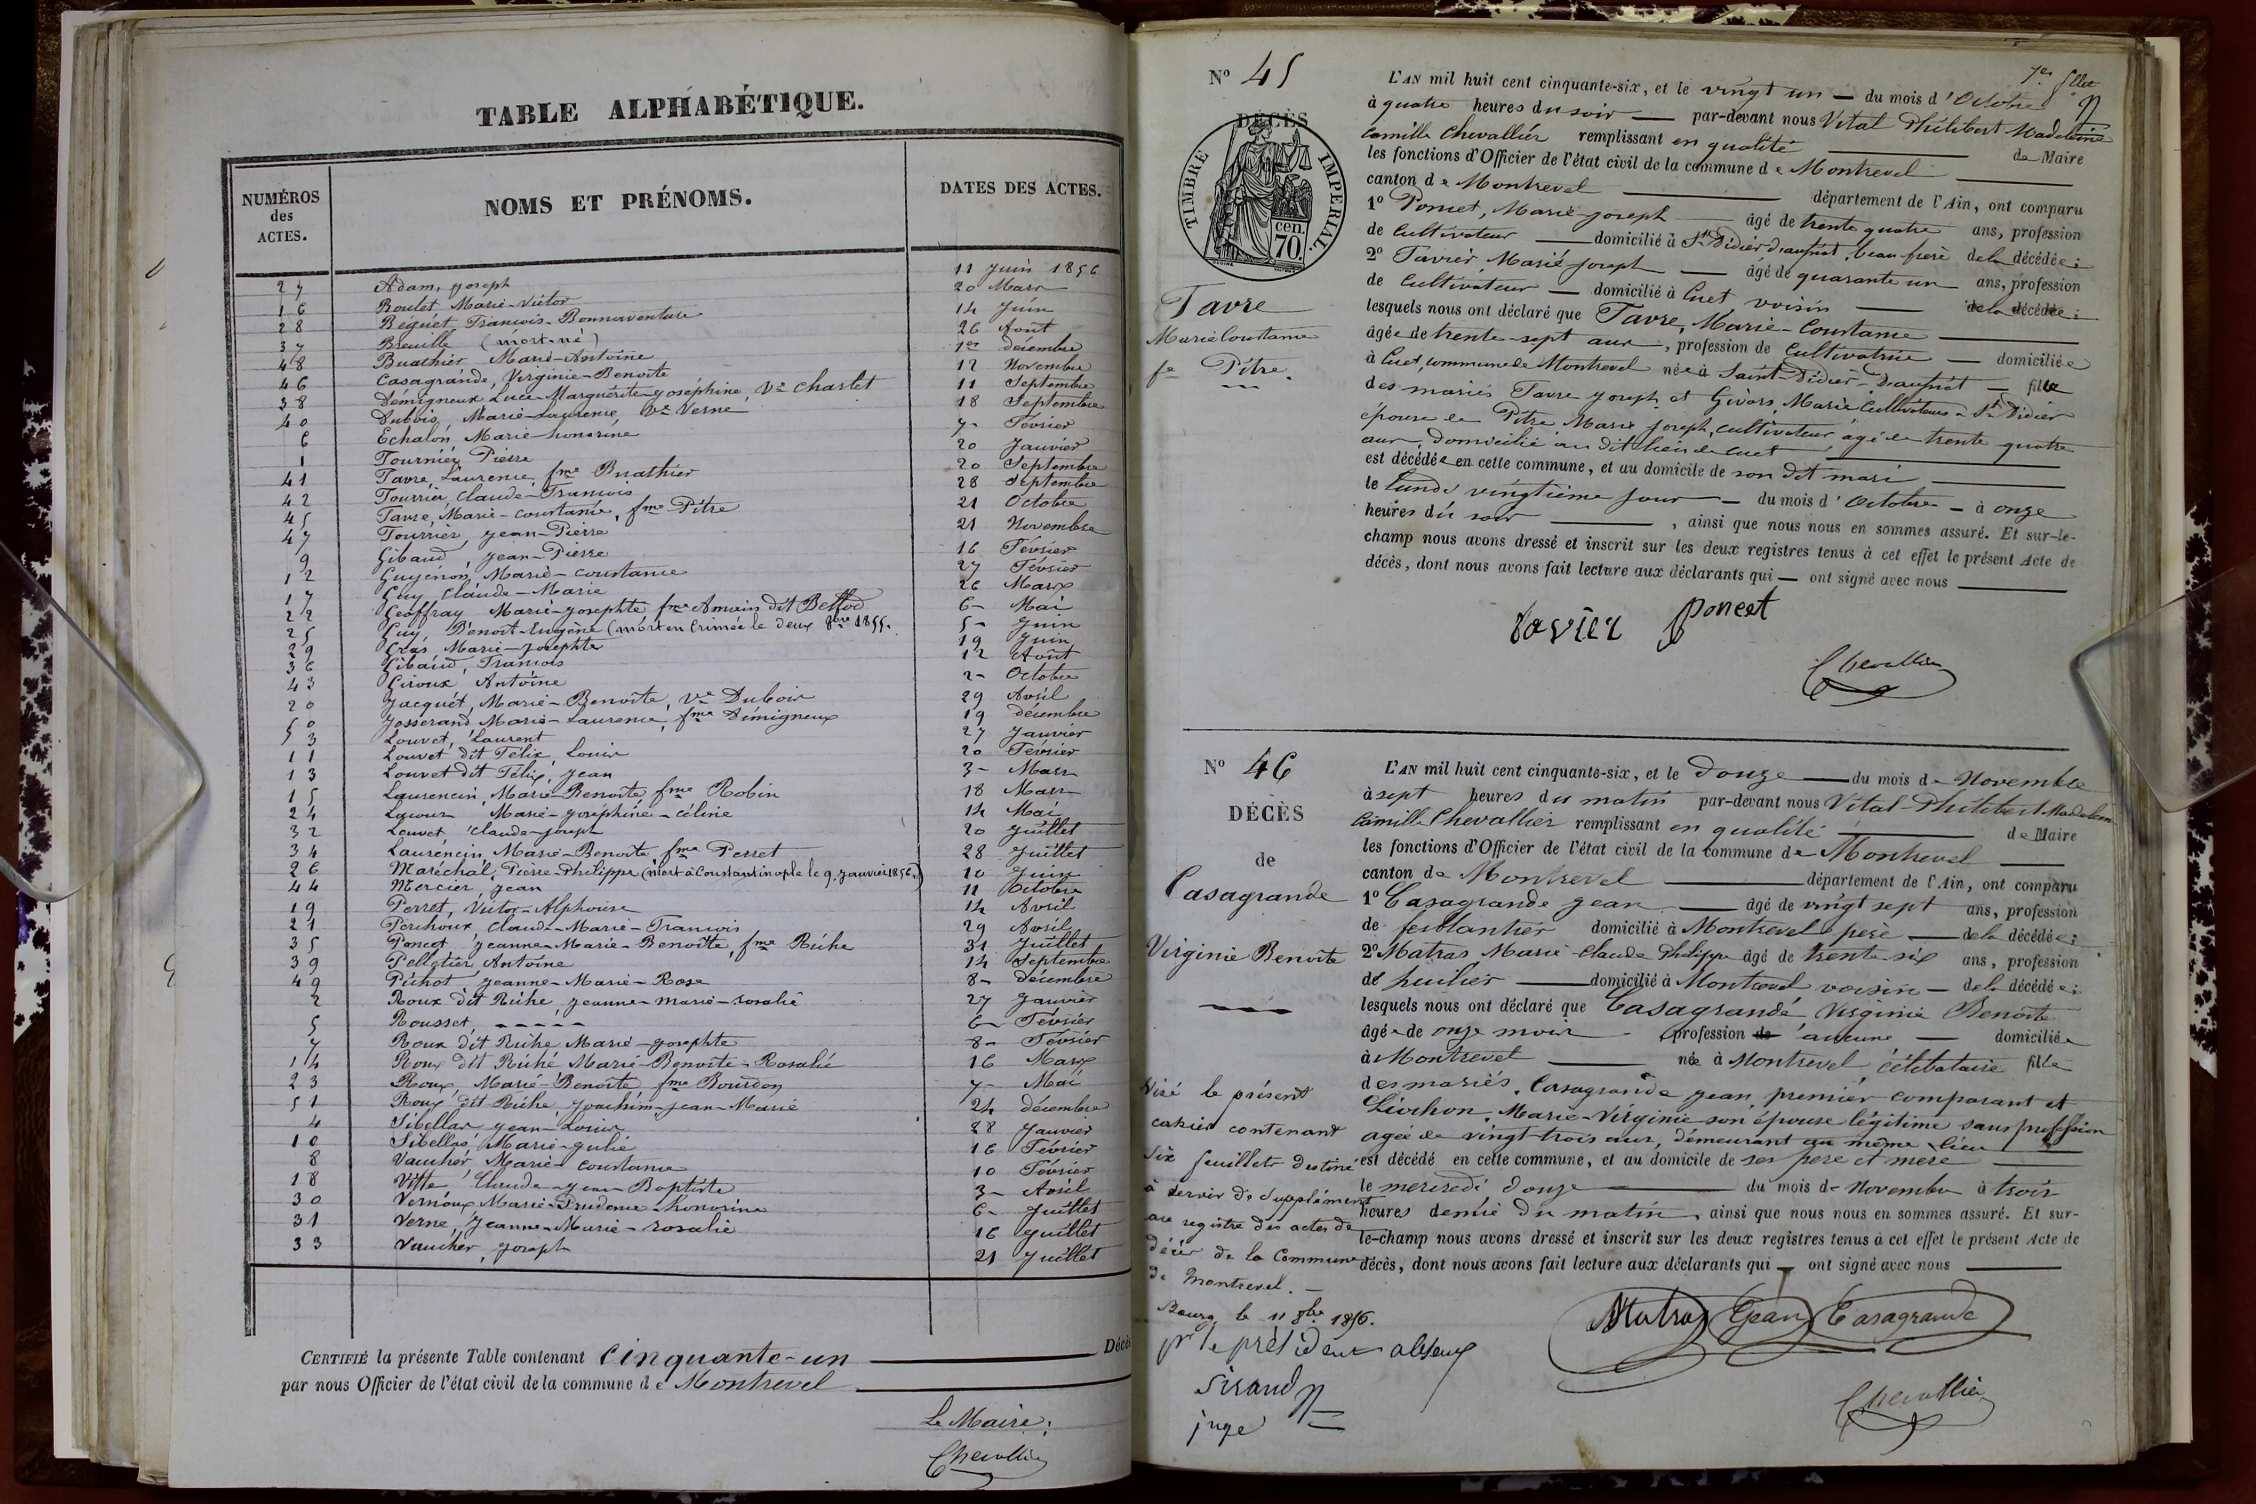 TABLE ALPHABÉTIQUE.
NUMÉROS des ACTES. NOMS ET PRÉNOMS. DATES DES ACTES.
27 Adam, joseph 11 Juin 1856
16 Boulet Marie-Victor 20 Mars
28 Beguet François-Bonnaventure 14 Juin
37 Breuille (mort-né) 26 Août
48 Buathier Marie-Antoine 1er décembre
46 Casagrande, Virginie-Benoite 12 Novembre
38 Démigneux Luce-Marguérite-joséphine, Ve Charlet 11 Septembre
40 Dubois, Marie-Laurence, Ve Verne 18 Septembre
6 Echalon Marie-honorine 7- Février
1 Fournier Pierre 20 Janvier
41 Favre, Laurence, fme Buathier 20 Septembre
42 Fourrier, claude-François 28 Septembre
45 Favre, Marie-constance, fme Pitre 21 Octobre
47 Fourrier, jean-Pierre 21 Novembre
9 Gibaud, jean-Pierre 16 Février
12 Guyénon, Marie-constance 27 Février
17 Guy claude-Marie 26 Mars
22 Geoffray Marie-josephte fme Amien dit Belfod 6- Mai
25 Guy, Benoit-Eugène (mort en Crimée le deux 8bre 1855. 5- Juin
29 Gras, Marie-josephte 19 Juin
36 Gibaud, François 12 Août
43 Giroux Antoine 2- Octobre
20 Jacquet, Marie-Benoite, Ve Dubois 29 Avril
50 Josserand Marie-Laurence, fme Démigneux 19 décembre
3 Louvet, Laurent 27 Janvier
11 Louvet dit Félix, Louis 20 Février
13 Louvet dit Félix, jean 3- Mars
15 Laurencin, Marie-Benoite, fme Robin 18 Mars
24 Lacour Marie-joséphine-céline 14 Mai
32 Louvet claude-joseph 20 Juillet
34 Laurencin, Marie-Benoite, fme Perret 28 Juillet
26 Maréchal, Pierre-Philippe (mort à Constantinople le 9. Janvier 1856.) 10 Juin
44 Mercier, jean 11 Octobre
19 Perret, Victor-Alphonse 14 Avril
21 Perchoux, claude-Marie-François 29 Avril
35 Poncet, jeanne-Marie-Benoitte, fme Riche 31 Juillet
39 Pelletier Antoine 14 Septembre
49 Pichot, jeanne-Marie-Rose 8- décembre
2 Roux dit Riche, jeanne-marie-rosalie 27 Janvier
5 Rousset, 6- Février
7 Roux dit Riche Marie-josephte 8- Février
14 Roux dit Riche Marie-Benoite-Rosalie 16 Mars
23 Roux, Marie-Benoite fme Bourdon 7- Mai
51 Roux dit Riche, joachim-jean-Marie 24 décembre
4 Sibellas jean-Louis 28 Janvier
10 Sibellas Marie-julie 16 Février
8 Vaucher Marie constance 10 Février
18 Vitte Claude-jean-Baptiste 3- Avril
30 Vernoux Marie-Prudence-honorine 6- Juillet
31 Verne, jeanne-Marie-rosalie 16 Juillet
33 Vaucher, joseph 21 Juillet
CERTIFIÉ la présente Table contenant Cinquante-un Décès
par nous Officier de l'état civil de la commune de Montrevel
Le Maire;
Chevallier
7e fllet
No 45
DÉCÈS
TIMBRE IMPÉRIAL.
cen. 70.
Favre
Marie Constance
fe Pitre.
L'AN mil huit cent cinquante-six, et le vingt un du mois d'Octobre
à quatre heures du soir par-devant nous Vital Philibert Madeleine
Camille Chevallier remplissant en qualité de Maire
les fonctions d'Officier de l'état civil de la commune de Montrevel
canton de Montrevel département de l'Ain, ont comparu
1o Poncet, Marie-joseph âgé de trente quatre ans, profession
de Cultivateur domicilié à St Didier d'aussiat, beau frère de la décédée;
2o Favier Marie joseph âgé de quarante un ans, profession
de Cultivateur domicilié à Cuet voisin de la décédée;
lesquels nous ont déclaré que Favre, Marie-Constance
âgée de trente-sept ans, profession de Cultivatrice domiciliée
à Cuet, commune de Montrevel née à Saint-Didier-d'aussiat fille
des mariés Favre joseph et Givors, Marie Cultivateurs à St Didier
épouse de Pitre Marie joseph, cultivateur âgé de trente quatre
ans, domicilié au dit lieu de Cuet
est décédée en cette commune, et au domicile de son dit mari
le lundi vingtième jour du mois d'Octobre à onze
heures du soir, ainsi que nous nous en sommes assuré. Et sur-le-
champ nous avons dressé et inscrit sur les deux registres tenus à cet effet le présent Acte de
décès, dont nous avons fait lecture aux déclarants qui ont signé avec nous
favier poncet
Chevallier
No 46
DÉCÈS
de
Casagrande
Virginie Benoite
L'AN mil huit cent cinquante-six, et le douze du mois de Novembre
à sept heures du matin par-devant nous Vital-Philibert Madelein
Camille Chevallier remplissant en qualité de Maire
les fonctions d'Officier de l'état civil de la commune de Montrevel
canton de Montrevel département de l'Ain, ont comparu
1o Casagrande jean âgé de vingt sept ans, profession
de ferblantier domicilié à Montrevel père de la décédée;
2o Matras Marie-Claude Philippe âgé de trente-six ans, profession
de huilier domicilié à Montrevel voisin de la décédée;
lesquels nous ont déclaré que Casagrande Virginie Benoite
âgée de onze mois profession de aucune domiciliée
à Montrevel née à Montrevel, célibataire fille
des mariés Casagrande jean, premier comparant et
Liochon, Marie-Virginie son épouse légitime sans profession
agée de vingt-trois ans, demeurant au même lieu
est décédé en cette commune, et au domicile de ses père et mère
le mercredi douze du mois de Novembre à trois
heures demie du matin, ainsi que nous nous en sommes assuré. Et sur-
le-champ nous avons dressé et inscrit sur les deux registres tenus à cet effet le présent Acte de
décès, dont nous avons fait lecture aux déclarants qui ont signé avec nous
Matras Jean Casagrande
Chevallier
Visé le présent
cahier contenant
six feuillets destiné
à servir de supplément
au registre des actes de
décès de la Commune
de Montrevel.
Bourg le 11 8bre 1856.
pr le président absent
Sirand
juge